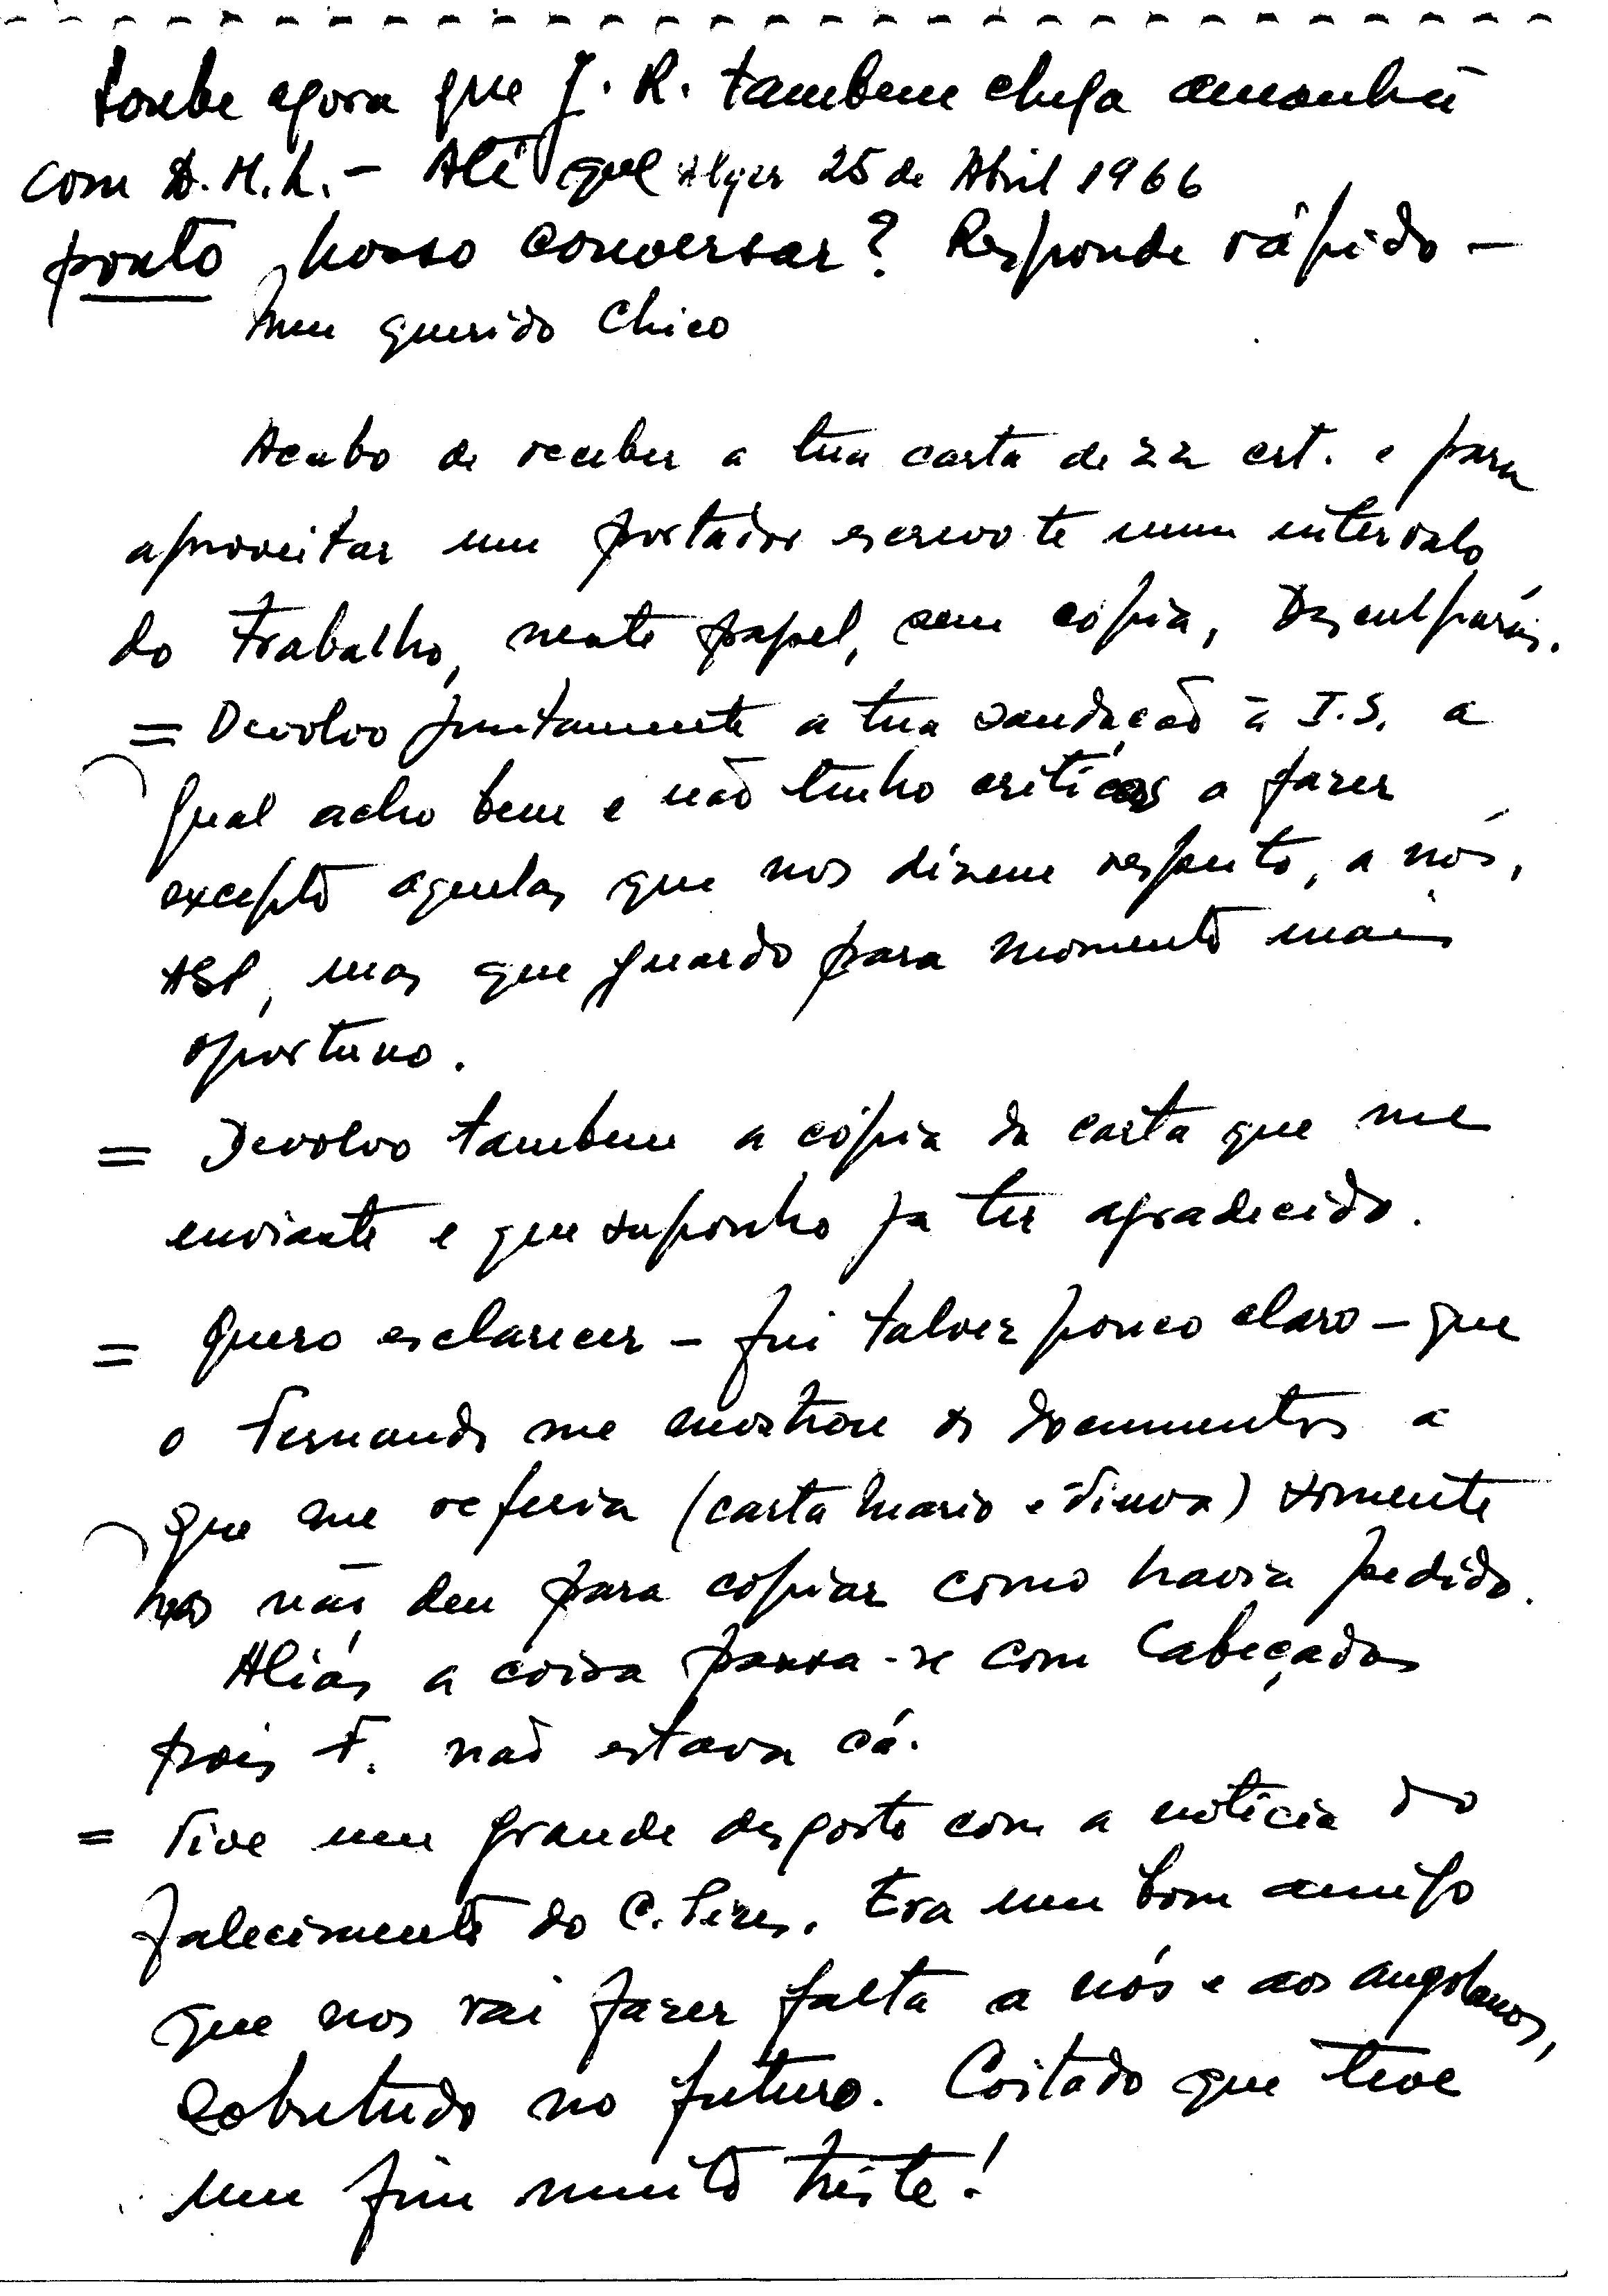 Soube agora que J. R. tambem chega amanhã
com D. M. L. – Até que Alger 25 de Abril 1966
ponto posso conversar? Responde rápido –
Meu querido Chico
Acabo de receber a tua carta de 22 crt. e para
aproveitar um portador escrevo te num intervalo
do trabalho, neste papel, sem cópia, Desculparás.
= Devolvo juntamente a tua saudação à I.S. a
qual acho bem e não tenho criticas a fazer
excepto aquelas que nos dizem respeito, a nós,
ASP, mas que guardo para momento mais
oportuno.
= Devolvo tambem a cópia da carta que me
enviaste e que suponho ja ter agradecido.
= Quero esclarecer – fui talvez pouco claro – que
o Fernando me mostrou os documentos a
que me referia (carta Mario e Tinoca) somente
não deu para copiar como havia pedido.
Aliás a coisa passa-se com Cabeçadas
pois F. não estava cá.
= Tive um grande desgosto com a noticia do
falecimento do C. Pires. Era um bom amigo
que nos vai fazer falta a nós e aos angolanos,
sobretudo no futuro. Coitado que teve
um fim muito triste!